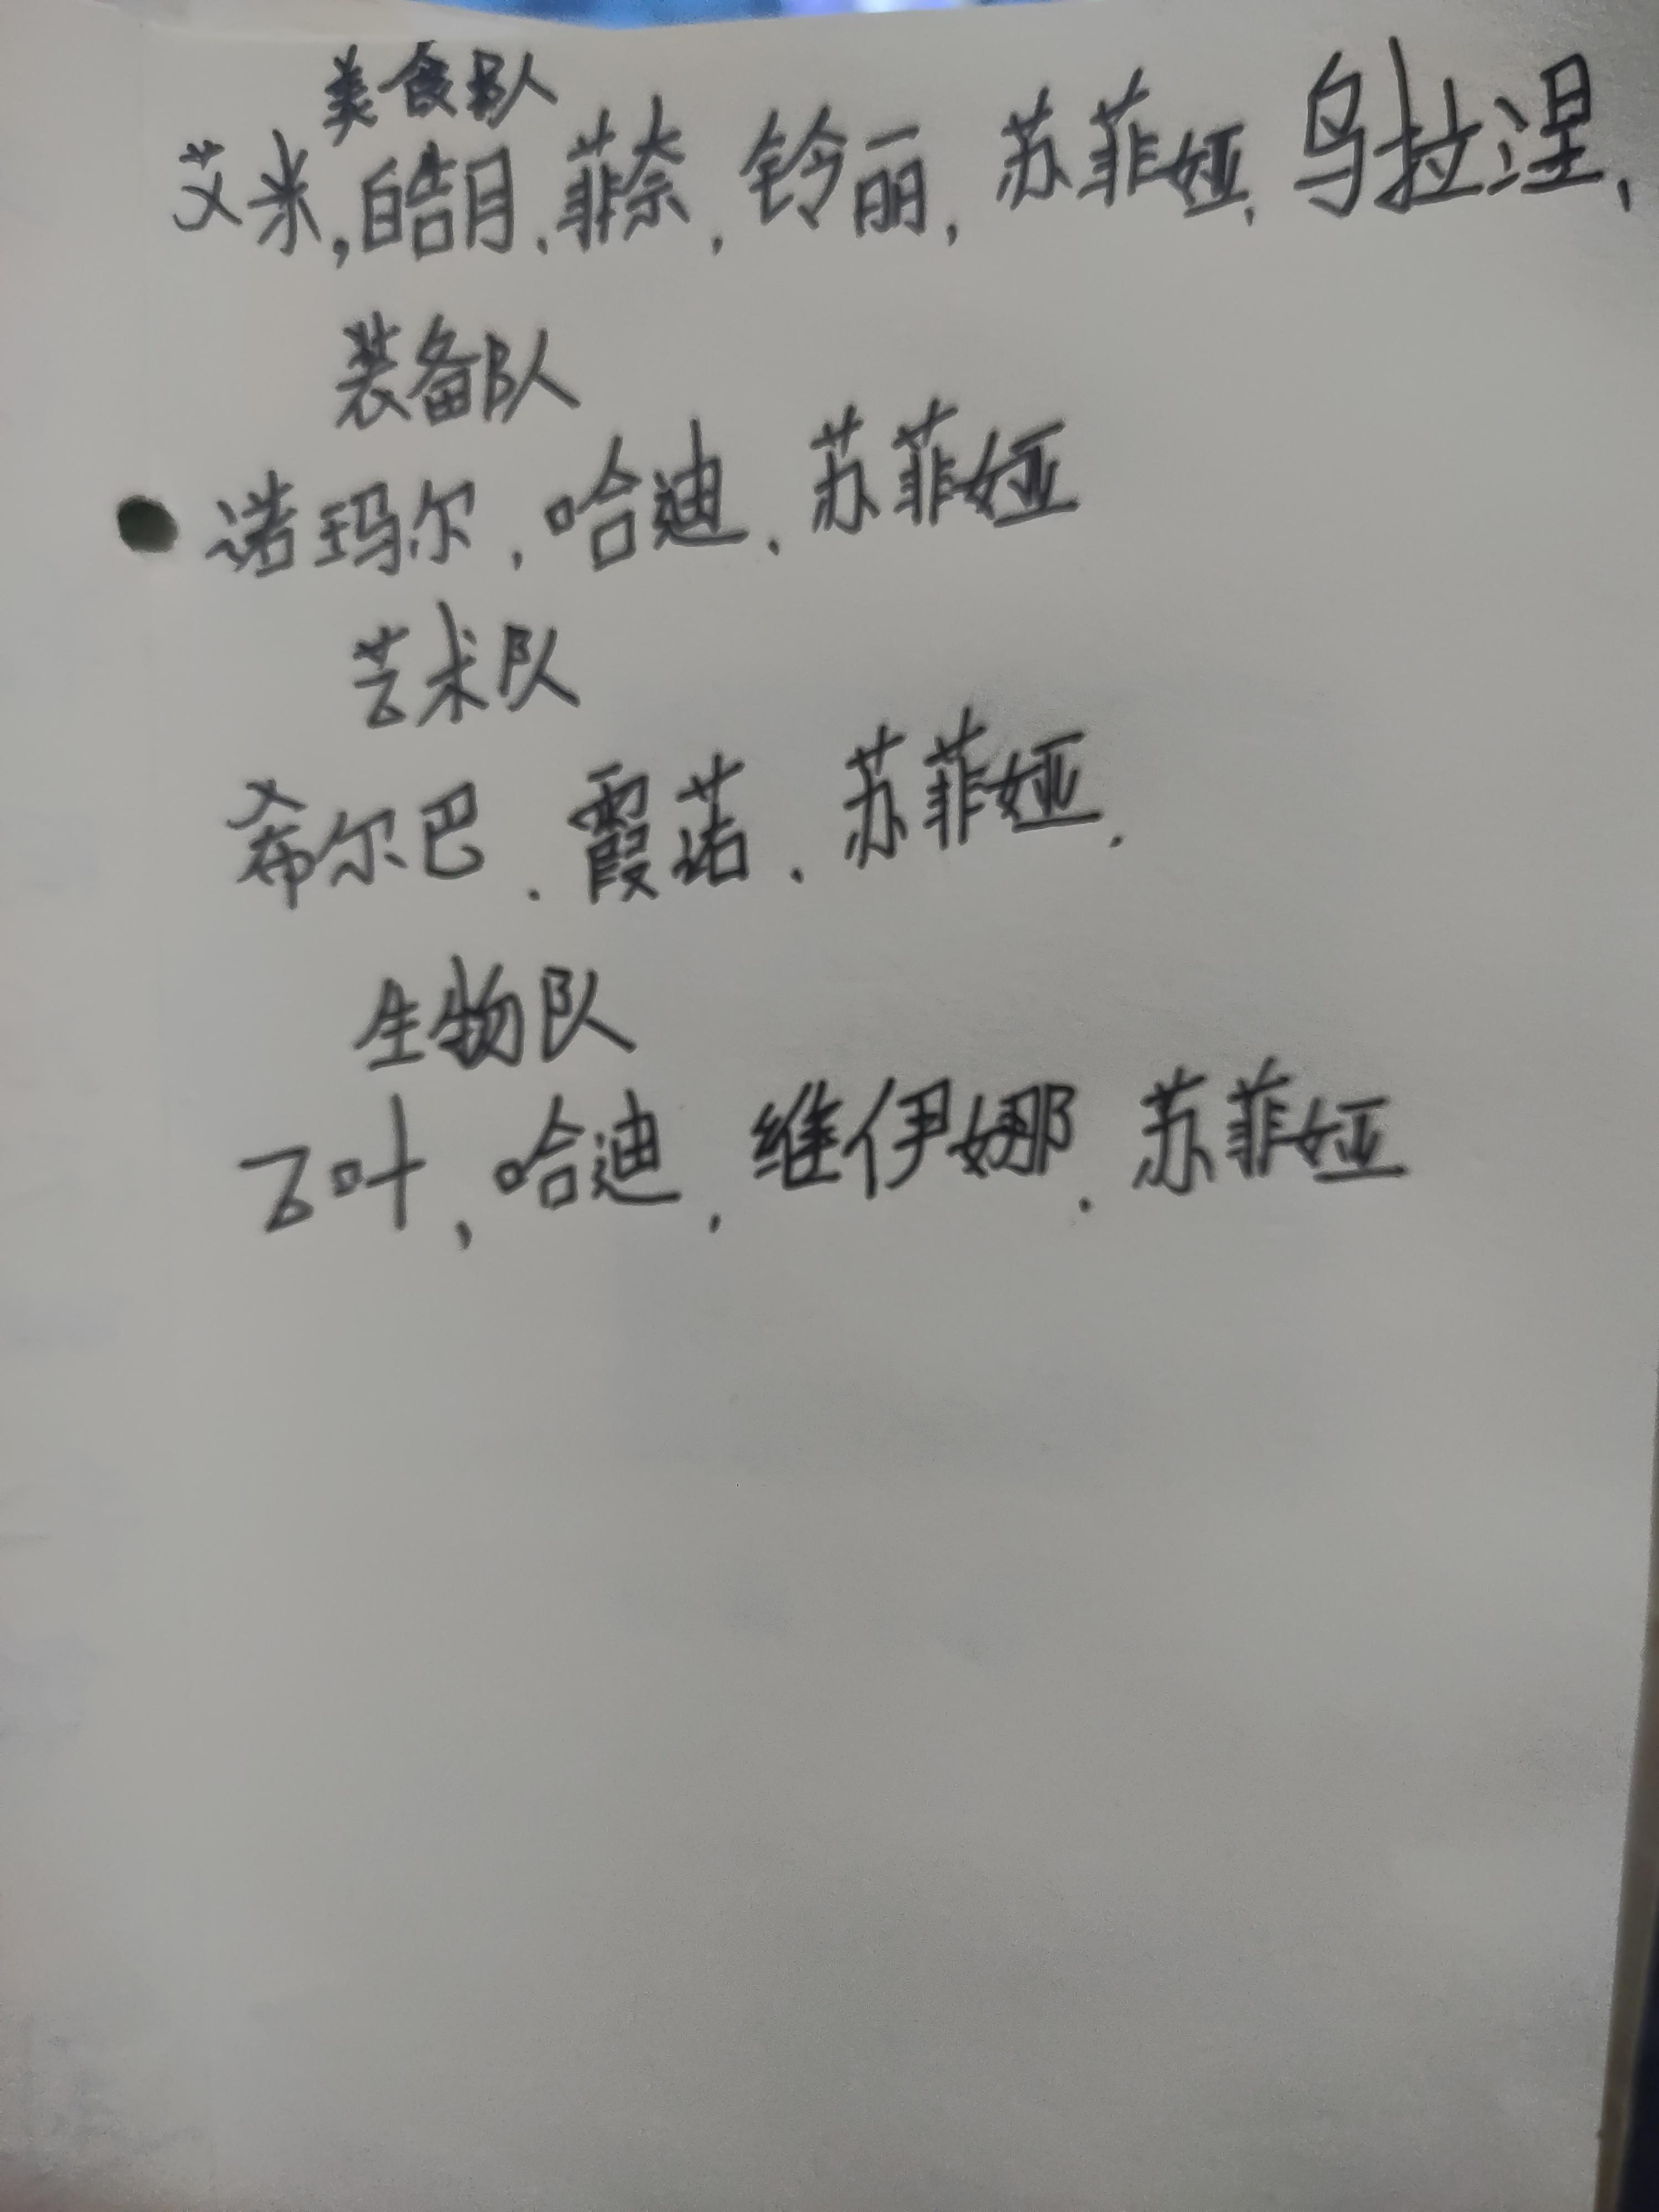 美食队
艾米,皓月.菲奈,铃丽,苏菲娅,乌拉涅,
装备队
诺玛尔,哈迪.苏菲娅
艺术队
希尔巴.霞诺.苏菲娅.
生物队
云叶,哈迪,维伊娜.苏菲娅